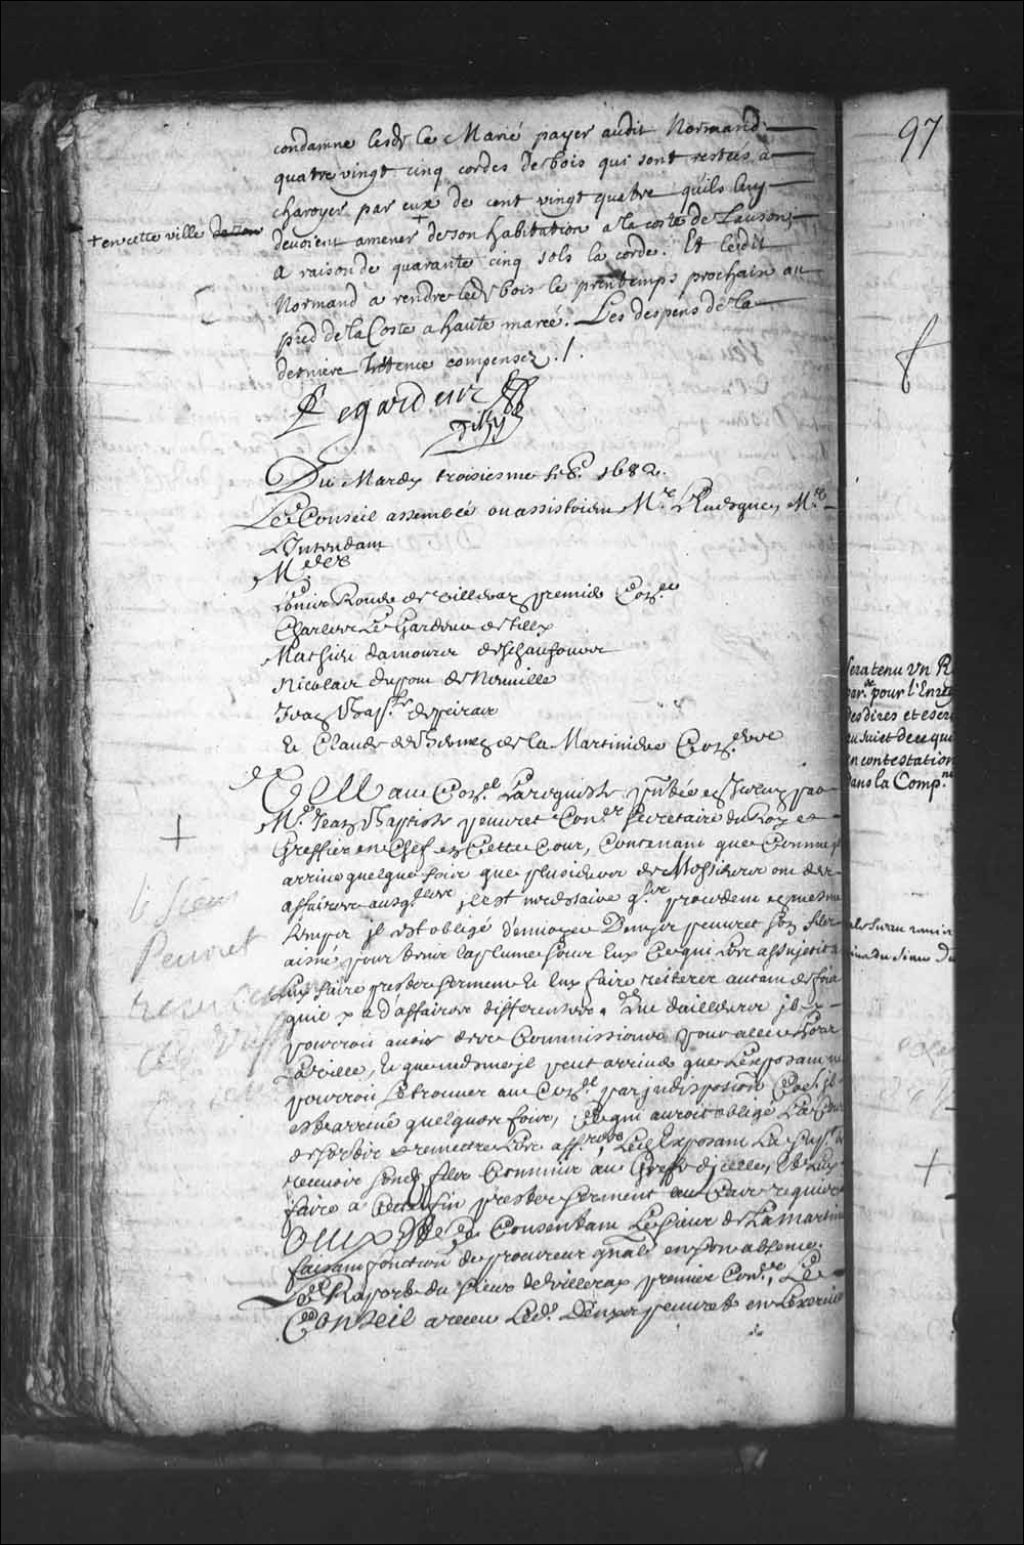 condamne lesds le Marié payer audit Normand
quatre vingt cinq cordes de bois qui sont restées à
charoyer par eux de cent vingt quatre quils luy
devoient amener + de son habitation a la coste de Lauson,
+ en cette ville
A raison de quarante cinq sols la corde. Et ledit
Normand à rendre led bois le printemps prochain au
pied de la Coste a haute marée. Les despens de la
derniere Instence compensez ./.
Legardeur
Tilly
Du Mardy troisiesme 1682.
Le Conseil assemblé ou assistoient Mr. L'Evesque, Mr.
L'Intendant
Mrs
Louis Rouer de Villeray premier Conser
Charles Le Gardeur de Tilly
Mathieu damours deschaufour
Nicolas dupont de Neuville
Jean Bapte depeiras
Et Claude de Bermen de la Martiniere Coners
Veu au Conel La requeste pntée en Iceluy par
Me. Jean Baptiste peuvret Coner Secretaire du Roy et
Greffier en Chef en Cette Cour, Contenant que Comme
arrive quelque fois que plusieurs de Messieurs ont des
affaires ausqlles il est necessaire qls procedent en mesme
temps il est obligé d'envoyer Denys peuvret son fils
aisné pour tenir la plume pour luy Ce qui les assujetit a
luy faire prester serment et luy faire reiterer autant de fois
qu'il y a d'affaires differentes. Que d'ailleurs il y
pourroit avoir des Commissions pour aller hors
la ville, et que mesme il peut arriver que L'exposant ne
pourroit se trouver au Conel par indisposition Coe il
est arrivé quelques fois, Ce qui auroit obligé La Cour
de remettre Les affres, Led Exposant La suppt de
recevoir sond fils Commis au Greffe d'icelle, Et luy
faire a Cette fin prester serment au Cas requis
Ouy Et Ce Consentant Le Sieur de La martin
faisant fonction de procureur gnal en son absence.
Le Raport du sieur de Villeray premier Coner, Le
Conseil a receu Led. Denys peuvret en L'exercice
le Sieur
Peuvret
97
sera tenu un R
par pour l'Enreg
des dires et escri
au suiet de ce qui
en contestation
dans la Comp.